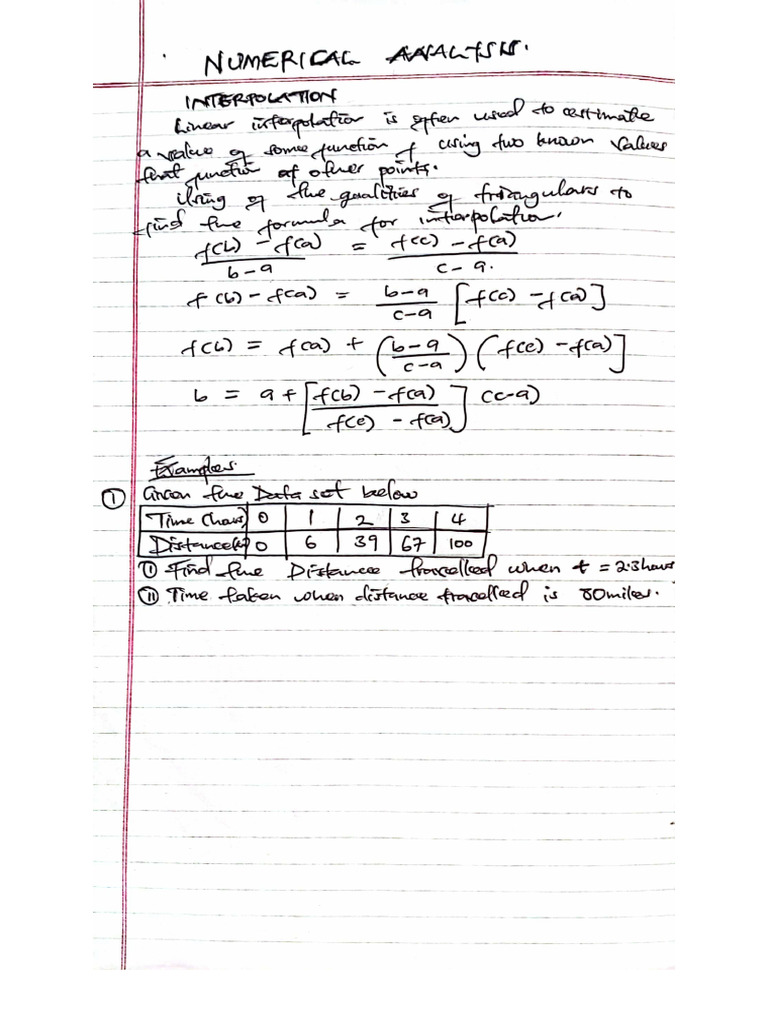 NUMERICAL ANALYSIS.
INTERPOLATION
Linear interpolation is often used to estimate
a value of some function f using two known values
that function at other points.
Using of the qualities of triangulars to
find the formula for interpolation.
f(b) - f(a) / b - a = f(c) - f(a) / c - a.
f(b) - f(a) = b-a / c-a [f(c) - f(a)]
f(b) = f(a) + (b-a / c-a) (f(c) - f(a)]
b = a + [f(b) - f(a) / f(c) - f(a)] (c-a)
Examples.
① Given the Data set below
Time (hours) 0 1 2 3 4
Distance 0 6 39 67 100
① Find the Distance travelled when t = 2.3hours
② Time taken when distance travelled is 80miles.